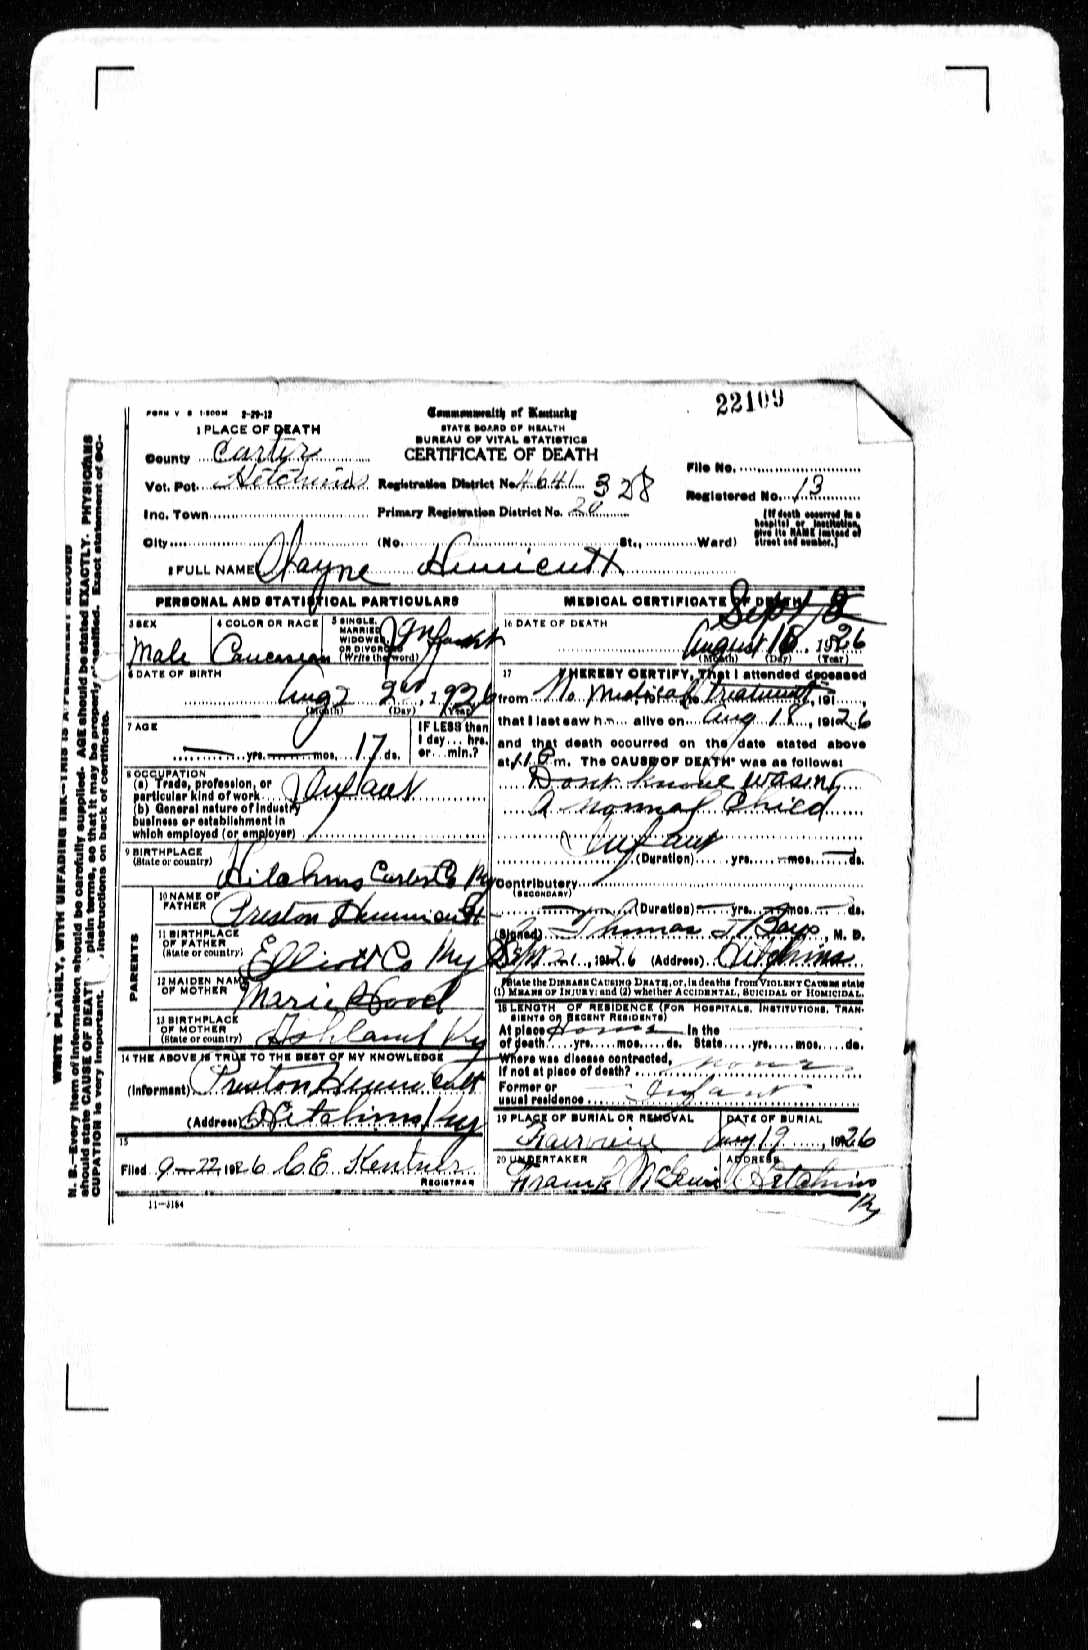 22109
FORM V S 1-500M 2-29-12
Commonwealth of Kentucky
STATE BOARD OF HEALTH
BUREAU OF VITAL STATISTICS
CERTIFICATE OF DEATH
1 PLACE OF DEATH
County Carter
Vot. Pct. Hitchins
Registration District No. 4641 328
File No.
Inc. Town
Primary Registration District No. 20
Registered No. 13
[If death occurred in a hospital or institution, give its NAME instead of street and number.]
City (No. St., Ward)
2 FULL NAME Wayne Hunnicutt
PERSONAL AND STATISTICAL PARTICULARS
3 SEX
Male
4 COLOR OR RACE
Caucasian
5 SINGLE, MARRIED, WIDOWED, OR DIVORCED
(Write the word)
Infant
6 DATE OF BIRTH
Aug 2nd, 1926
(Month) (Day) (Year)
7 AGE
yrs. mos. 17 ds.
IF LESS than
1 day... hrs.
or... min.?
8 OCCUPATION
(a) Trade, profession, or
particular kind of work Infant
(b) General nature of industry
business or establishment in
which employed (or employer)
9 BIRTHPLACE
(State or country)
Hitchins Carter Co Ky
PARENTS
10 NAME OF
FATHER
Preston Hunnicutt
11 BIRTHPLACE
OF FATHER
(State or country)
Elliott Co Ky
12 MAIDEN NAME
OF MOTHER
Marie Hood
13 BIRTHPLACE
OF MOTHER
(State or country)
Ashland Ky
14 THE ABOVE IS TRUE TO THE BEST OF MY KNOWLEDGE
(Informant) Preston Hunnicutt
(Address) Hitchins Ky
15
Filed 9-22, 1926 C E Kentner
REGISTRAR
11-3184
MEDICAL CERTIFICATE OF DEATH
16 DATE OF DEATH
Sept 18
August 18, 1926
(Month) (Day) (Year)
17 I HEREBY CERTIFY, That I attended deceased
from No medical treatment, 191
that I last saw h alive on Aug 18, 1926
and that death occurred on the date stated above
at m. The CAUSE OF DEATH* was as follows:
Dont know was
a normal child
Infant
(Duration) yrs. mos. ds.
Contributory
(SECONDARY)
(Duration) yrs. mos. ds.
(Signed) Thomas J. Bays, M. D.
Sept 21, 1926 (Address) Hitchins
*State the DISEASE CAUSING DEATH, or, in deaths from VIOLENT CAUSES state
(1) MEANS OF INJURY; and (2) whether ACCIDENTAL, SUICIDAL OR HOMICIDAL.
18 LENGTH OF RESIDENCE (FOR HOSPITALS, INSTITUTIONS, TRANSIENTS OR RECENT RESIDENTS)
At place Home In the
of death yrs. mos. ds. State yrs. mos. ds.
Where was disease contracted,
If not at place of death? none
Former or
usual residence Infant
19 PLACE OF BURIAL OR REMOVAL
Fairview
DATE OF BURIAL
Aug 19, 1926
20 UNDERTAKER
Frank McGuire
ADDRESS
Hitchins
Ky
WRITE PLAINLY, WITH UNFADING INK—THIS IS A PERMANENT RECORD
N. B.—Every item of information should be carefully supplied. AGE should be stated EXACTLY. PHYSICIANS
should state CAUSE OF DEATH in plain terms, so that it may be properly classified. Exact statement of OC-
CUPATION is very important. instructions on back of certificate.